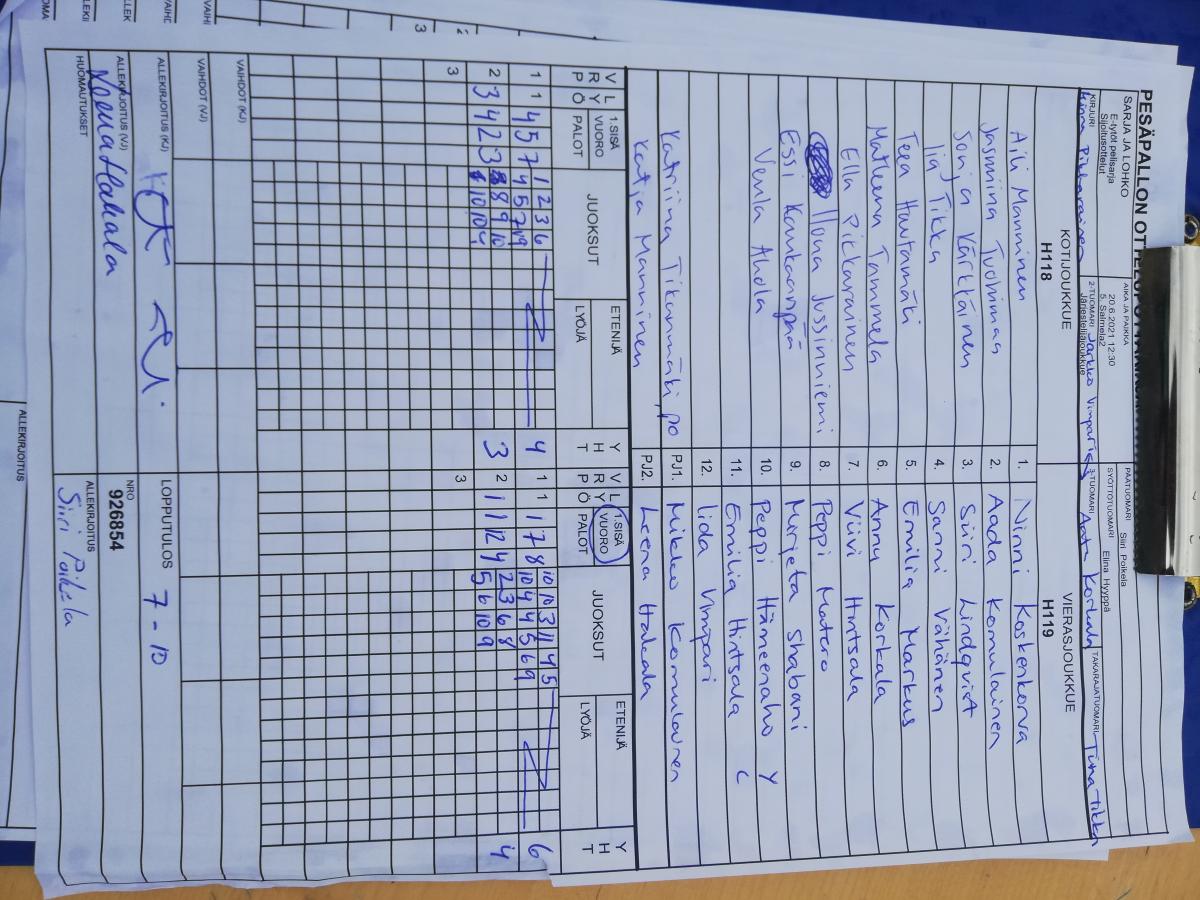 PESÄPALLON
SARJA JA LOHKO
E-tytöt pelisarja
Sijoitusottelut
AIKA JA PAIKKA
20.6.2021 12:30
5. Salmela2
PÄÄTUOMARI Siiri Poikela
SYÖTTÖTUOMARI Elina Hyyppä
KIRJURI
2-TUOMARI Jarkko Vimpari
Järjestelijäjoukkue
3-TUOMARI Korkala
TAKARAJATUOMARI Tiina Tikka
KOTIJOUKKUE VIERASJOUKKUE
H118 H119
Aili Manninen 1. Ninni Koskenkorva
Jasmina Tuohimaa 2. Aada Komulainen
Sonja Värttäinen 3. Siiri Lindqvist
Iia Tikka 4. Sanni Vähänen
Teea Hautamäki 5. Emilia Markus
Matleena Tammela 6. Anny Korkala
Ella Pikkarainen 7. Viivi Hintsala
Ilona Jussinniemi 8. Peppi Matero
Essi Kankaanpää 9. Marjeta Shabani
Venla Ahola 10. Peppi Hämeenaho Y
11. Emilia Hintsala C
12. Iida Vimpari
Katriina Tikanmäki, po PJ1. Mikko Komulainen
Katja Manninen PJ2. Leena Hakala
V L 1.SISÄ JUOKSUT ETENIJÄ Y V L 1.SISÄ JUOKSUT ETENIJÄ Y
R Y VUORO H R Y VUORO H
P Ö PALOT LYÖJÄ T P Ö PALOT LYÖJÄ T
1 1 4 5 7 1 2 3 6 4 1 1 1 7 8 10 10 3 11 4 5 6
4 5 7 10 4 4 5 6 9
2 3 4 2 3 8 9 10 3 2 1 1 12 4 2 3 6 8 4
10 10 5 6 10 9
3 3
VAIHDOT (KJ)
VAIHDOT (VJ)
ALLEKIRJOITUS (KJ)
LOPPUTULOS 7 - 10
ALLEKIRJOITUS (VJ)
Leena Hakala
NRO
926854
HUOMAUTUKSET
ALLEKIRJOITUS
Siiri Poikela
ALLEKIRJOITUS